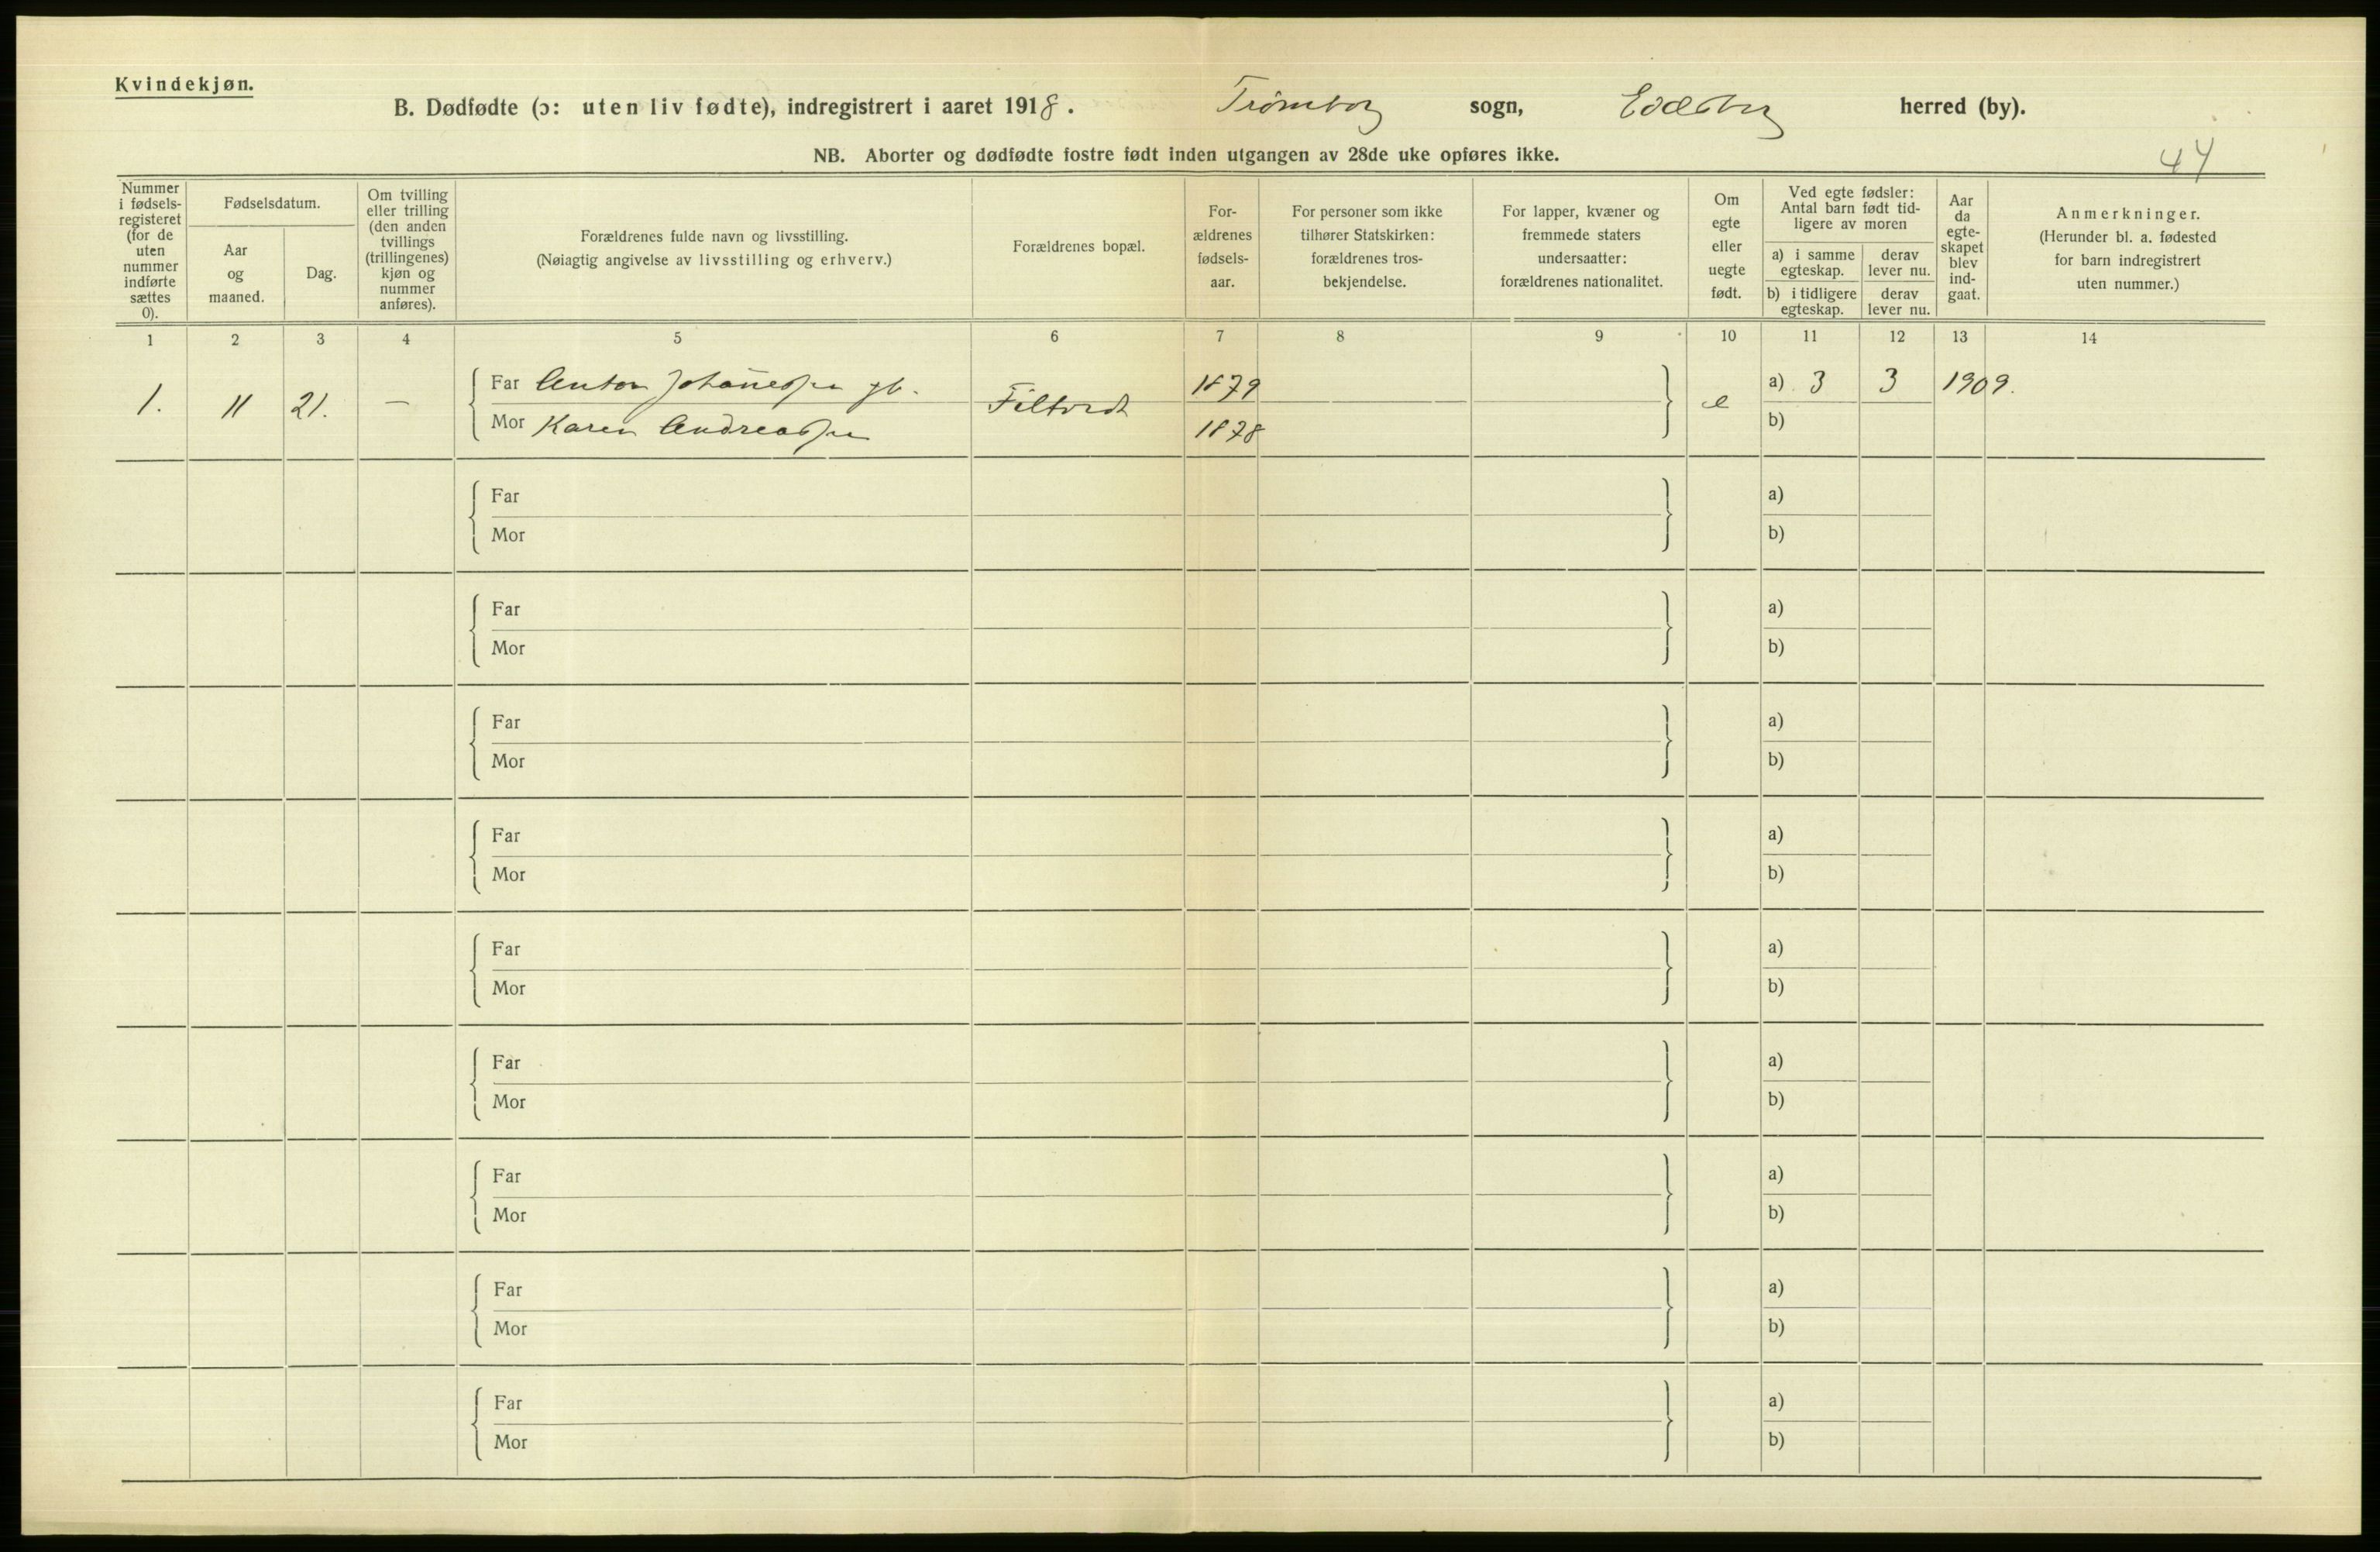 Kvindekjøn.
B. Dødfødte (ɔ: uten liv fødte), indregistrert i aaret 1918. Trømborg sogn, Eidsberg herred (by).
NB. Aborter og dødfødte fostre født inden utgangen av 28de uke opføres ikke.
44
Nummer
i fødsels-
registeret
(for de
uten
nummer
indførte
sættes
0).
Fødselsdatum.
Aar
og
maaned.
Dag.
Om tvilling
eller trilling
(den anden
tvillings
(trillingenes)
kjøn og
nummer
anføres).
Forældrenes fulde navn og livsstilling.
(Nøiagtig angivelse av livsstilling og erhverv.)
Forældrenes bopæl.
For-
ældrenes
fødsels-
aar.
For personer som ikke
tilhører Statskirken:
forældrenes tros-
bekjendelse.
For lapper, kvæner og
fremmede staters
undersaatter:
forældrenes nationalitet.
Om
egte
eller
uegte
født.
Ved egte fødsler:
Antal barn født tid-
ligere av moren
a) i samme
egteskap.
derav
lever nu.
b) i tidligere
egteskap.
derav
lever nu.
Aar
da
egte-
skapet
blev
ind-
gaat.
Anmerkninger.
(Herunder bl. a. fødested
for barn indregistrert
uten nummer.)
1 2 3 4 5 6 7 8 9 10 11 12 13 14
1. 11 21. — Far Anton Johannessen gb. 1879 a) 3 3 1909.
Mor Karen Andreassen Filtvedt 1878 e b)
Far a)
Mor b)
Far a)
Mor b)
Far a)
Mor b)
Far a)
Mor b)
Far a)
Mor b)
Far a)
Mor b)
Far a)
Mor b)
Far a)
Mor b)
Far a)
Mor b)